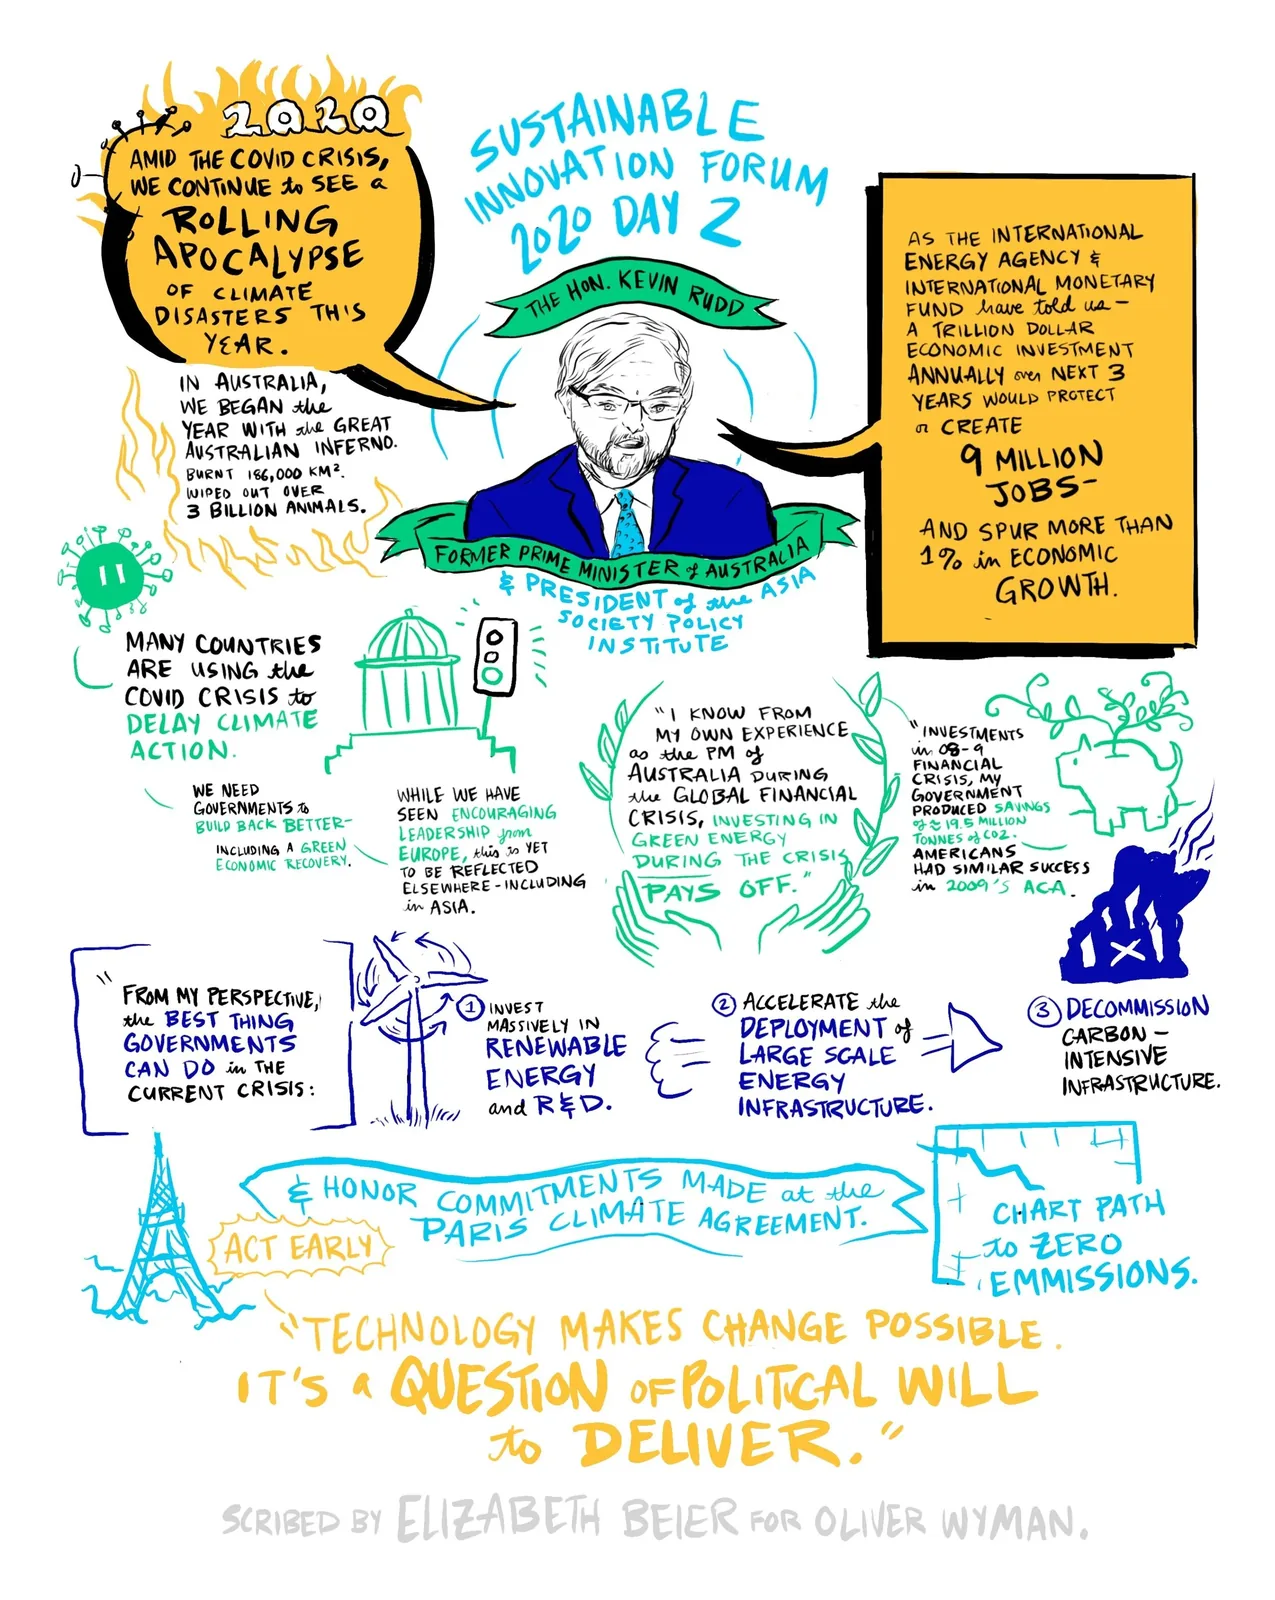 2020
AMID THE COVID CRISIS,
WE CONTINUE to SEE a
ROLLING
APOCALYPSE
OF CLIMATE
DISASTERS THIS
YEAR.
SUSTAINABLE
INNOVATION FORUM
2020 DAY 2
THE HON. KEVIN RUDD
FORMER PRIME MINISTER of AUSTRALIA
& PRESIDENT of the ASIA
SOCIETY POLICY
INSTITUTE
AS THE INTERNATIONAL
ENERGY AGENCY &
INTERNATIONAL MONETARY
FUND have told us –
A TRILLION DOLLAR
ECONOMIC INVESTMENT
ANNUALLY over NEXT 3
YEARS WOULD PROTECT
or CREATE
9 MILLION
JOBS –
AND SPUR MORE THAN
1% in ECONOMIC
GROWTH.
IN AUSTRALIA,
WE BEGAN the
YEAR WITH the GREAT
AUSTRALIAN INFERNO.
BURNT 186,000 KM².
WIPED OUT OVER
3 BILLION ANIMALS.
MANY COUNTRIES
ARE USING the
COVID CRISIS to
DELAY CLIMATE
ACTION.
WE NEED
GOVERNMENTS to
BUILD BACK BETTER –
INCLUDING A GREEN
ECONOMIC RECOVERY.
WHILE WE HAVE
SEEN ENCOURAGING
LEADERSHIP from
EUROPE, this is YET
TO BE REFLECTED
ELSEWHERE – INCLUDING
in ASIA.
"I KNOW FROM
MY OWN EXPERIENCE
as the PM of
AUSTRALIA DURING
the GLOBAL FINANCIAL
CRISIS, INVESTING IN
GREEN ENERGY
DURING THE CRISIS
PAYS OFF."
"INVESTMENTS
in 08-9
FINANCIAL
CRISIS, MY
GOVERNMENT
PRODUCED SAVINGS
of ≈ 19.5 MILLION
TONNES of CO2.
AMERICANS
HAD SIMILAR SUCCESS
in 2009'S ACA.
"FROM MY PERSPECTIVE,
the BEST THING
GOVERNMENTS
CAN DO in THE
CURRENT CRISIS:
1 INVEST
MASSIVELY IN
RENEWABLE
ENERGY
and R&D.
2 ACCELERATE the
DEPLOYMENT of
LARGE SCALE
ENERGY
INFRASTRUCTURE.
3 DECOMMISSION
CARBON –
INTENSIVE
INFRASTRUCTURE.
& HONOR COMMITMENTS MADE at the
PARIS CLIMATE AGREEMENT.
ACT EARLY
CHART PATH
to ZERO
EMMISSIONS.
"TECHNOLOGY MAKES CHANGE POSSIBLE.
IT'S a QUESTION OF POLITICAL WILL
to DELIVER."
SCRIBED BY ELIZABETH BEIER FOR OLIVER WYMAN.